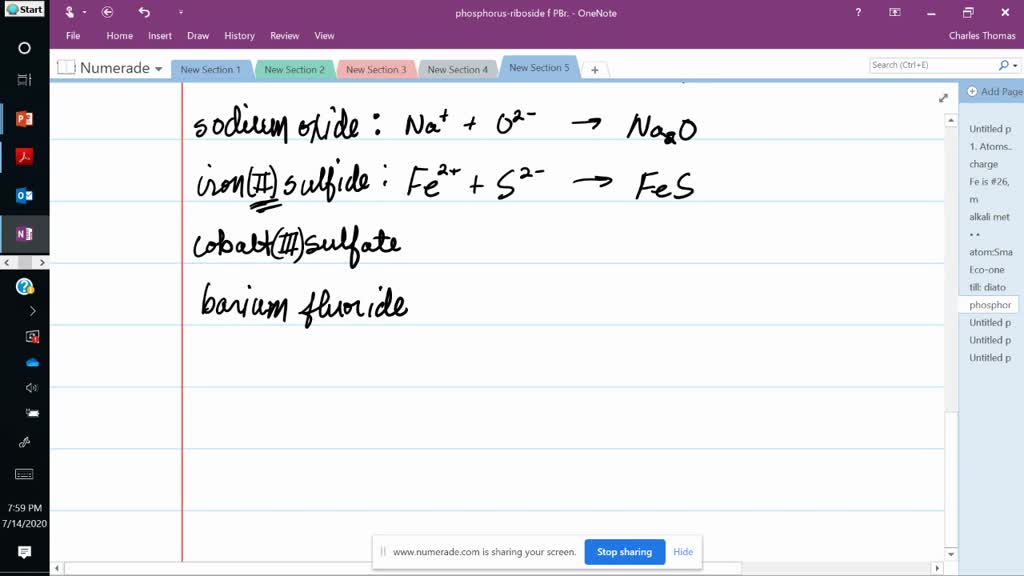 Start
phosphorus-riboside f PBr. - OneNote
?
File Home Insert Draw History Review View
Charles Thomas
Numerade
New Section 1
New Section 2
New Section 3
New Section 4
New Section 5
+
Search (Ctrl+E)
Add Page
sodium oxide : Na⁺ + O²⁻ → Na₂O
iron(II) sulfide : Fe²⁺ + S²⁻ → FeS
cobalt(III) sulfate
barium fluoride
Untitled p
1. Atoms..
charge
Fe is #26,
m
alkali met
• •
atom:Sma
Eco-one
till: diato
phosphor
Untitled p
Untitled p
Untitled p
7:59 PM
7/14/2020
www.numerade.com is sharing your screen.
Stop sharing
Hide